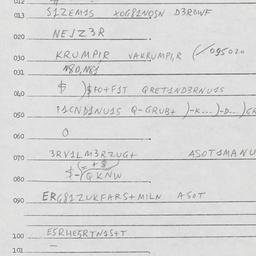 012
013 S1ZEM1S XOG81NQSN D3R0WF
020 NEJZ3R
030 KRUMPIR VAKRUMPI,R (/095020
031 N80,N81
040 $ )$FO+F1T QRET1ND3RNU1S
050 P1CND1NU1S Q-GRUB+ )-K...)-D...)GR
060 O
070 3RV1LM3RZUG+ ASOT1MANU
080 $-(QKNW
090 ERG81ZUKFARS+MILN ASOT
100 ESRHEGRTN1S+T
101 —